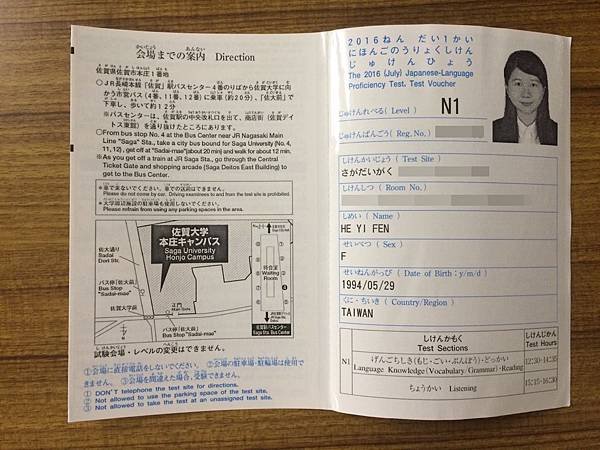 会場までの案内 Direction
かいじょう あんない
佐賀県佐賀市本庄1番地
○JR長崎本線「佐賀」駅バスセンター4番のりばから佐賀大学に向
かう市営バス(4番、11番、12番)に乗車(約20分)、「佐大前」で
下車し、歩いて約12分
※バスセンターは、佐賀駅の中央改札口を出て、商店街(佐賀デイ
トス東館)を通り抜けたところにあります。
○From bus stop No. 4 at the Bus Center near JR Nagasaki Main
Line "Saga" Sta., take a city bus bound for Saga University (No. 4,
11, 12) , get off at "Sadai-mae"(about 20 min) and walk for about 12 min.
※As you get off a train at JR Saga Sta., go through the Central
Ticket Gate and shopping arcade (Saga Deitos East Building) to
get to the Bus Center.
*車で来ないでください。車での送迎はできません。
Please do not come by car. Driving examinees to and from the test site is prohibited.
*大学周辺施設の駐車場も使用しないでください。
Please refrain from using any parking spaces in the area.
佐賀大学
本庄キャンパス
Saga University
Honjo Campus
佐大通り
Sadai
Dori Str.
バス停(佐大前)
Bus Stop
"Sadai-mae"
佐賀大学前
正門
Main Gate
バス停(佐大前)
Bus Stop "Sadai-mae"
待合室
Waiting
Room
佐賀駅バスセンター
Saga Sta. Bus Center
試験会場・レベルの変更はできません。
①会場に直接電話をしないでください。 ②会場の駐車場・駐輪場は使用で
きません。 ③会場を間違えた場合、受験できません。
① DON'T telephone the test site for directions.
② Not allowed to use the parking space of the test site.
③ Not allowed to take the test at an unassigned test site.
2016ねん だい1かい
にほんごのうりょくしけん
じゅけんひょう
The 2016 (July) Japanese-Language
Proficiency Test, Test Voucher
じゅけんれべる ( Level ) N1
じゅけんばんごう ( Reg. No. )
しけんかいじょう ( Test Site )
さがだいがく
しけんしつ ( Room No. )
しめい ( Name )
HE YI FEN
せいべつ ( Sex )
F
せいねんがっぴ ( Date of Birth ; y/m/d )
1994/05/29
くに・ちいき ( Country/Region )
TAIWAN
しけんかもく
Test Sections
しけんじかん
Test Hours
N1
げんごちしき(もじ・ごい・ぶんぽう)・どっかい
Language Knowledge(Vocabulary/Grammar)・Reading
12:30-14:35
ちょうかい Listening
15:15-16:30